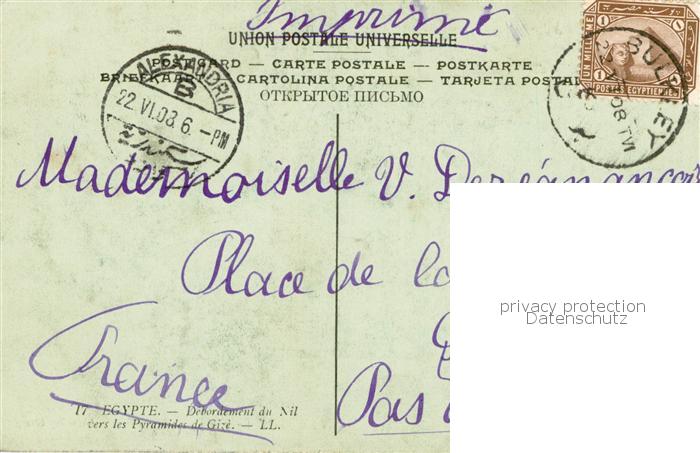 Imprimé
UNION POSTALE UNIVERSELLE
POSTCARD — CARTE POSTALE — POSTKARTE
BRIEFKAART — CARTOLINA POSTALE — TARJETA POSTAL
ОТКРЫТОЕ ПИСЬМО
ALEXANDRIA
B
22.VI.08.6.-PM
UN MILLIEME
1 1
POSTES EGYPTIENNES
BULKELEY
Mademoiselle V.
Place de
France
Pas
17 EGYPTE. — Débordement du Nil
vers les Pyramides de Gizé. — LL.
privacy protection
Datenschutz